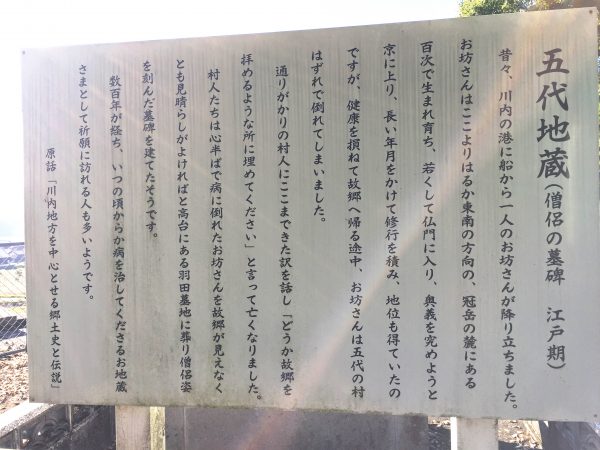 五代地蔵（僧侶の墓碑　江戸期）
昔々、川内の港に船から一人のお坊さんが降り立ちました。
お坊さんはここよりはるか東南の方向の、冠岳の麓にある
百次で生まれ育ち、若くして仏門に入り、奥義を究めようと
京に上り、長い年月をかけて修行を積み、地位も得ていたの
ですが、健康を損ねて故郷へ帰る途中、お坊さんは五代の村
はずれで倒れてしまいました。
通りがかりの村人にここまできた訳を話し「どうか故郷を
拝めるような所に埋めてください」と言って亡くなりました。
村人たちは心半ばで病に倒れたお坊さんを故郷が見えなく
とも見晴らしがよければと高台にある羽田墓地に葬り僧侶姿
を刻んだ墓碑を建てたそうです。
数百年が経ち、いつの頃からか病を治してくださるお地蔵
さまとして祈願に訪れる人も多いようです。
原話「川内地方を中心とせる郷土史と伝説」